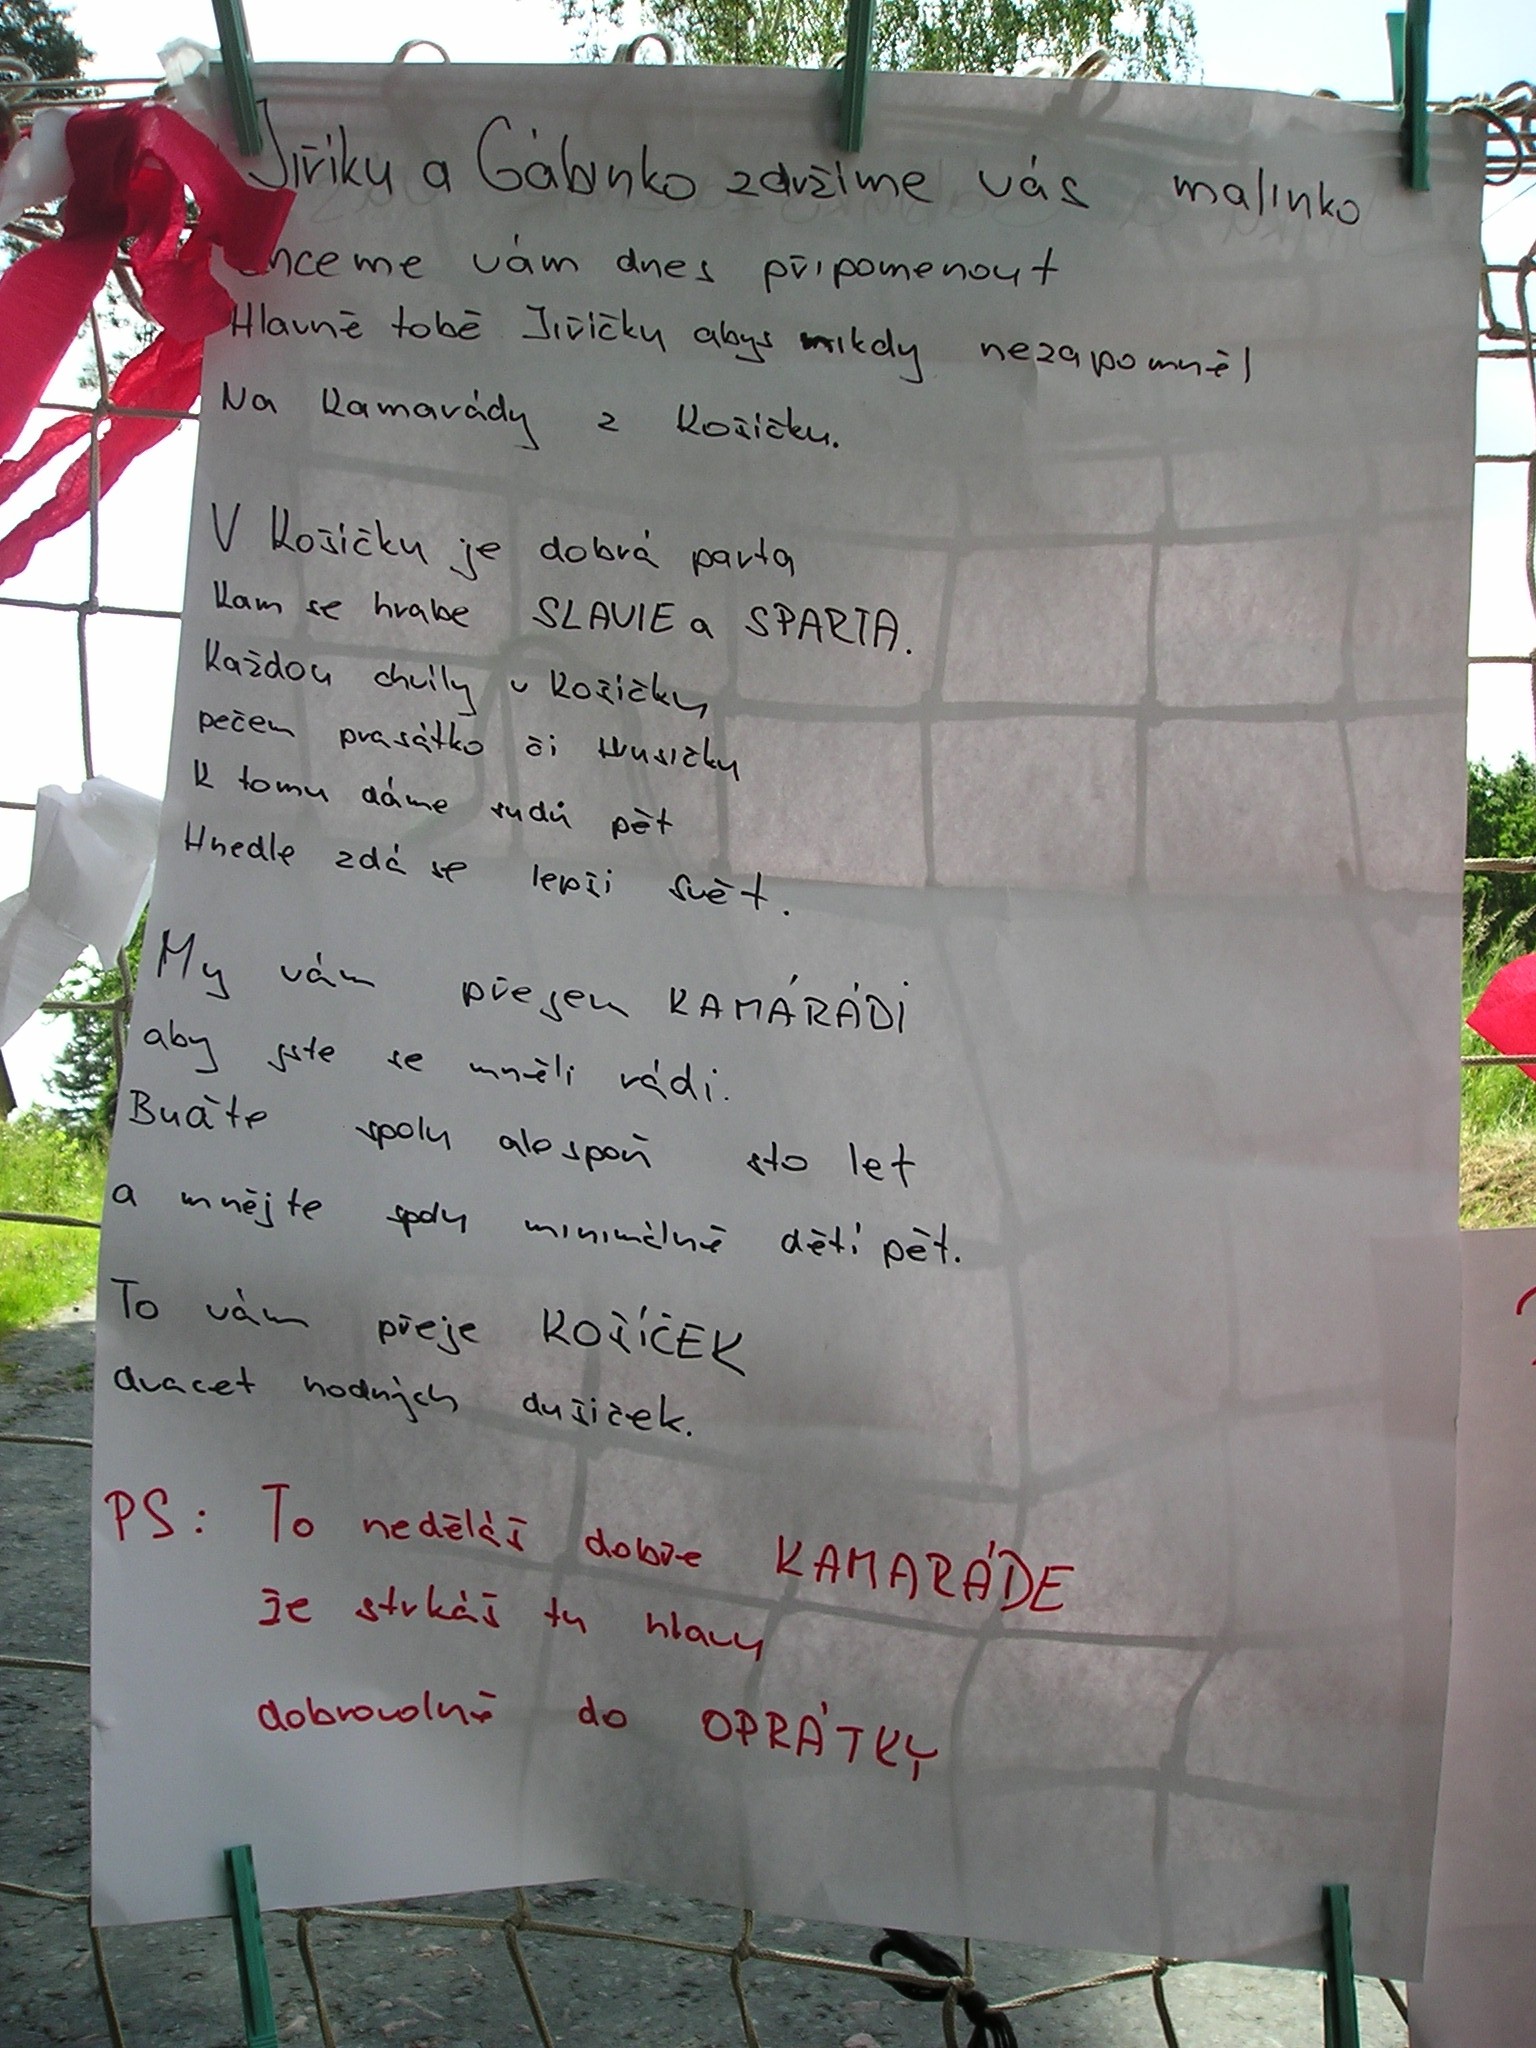 Jiříku a Gábinko zdržíme vás malinko
chceme vám dnes připomenout
Hlavně tobě Jiříčku abys nikdy nezapomněl
Na kamarády z Košíčku.
V Košíčku je dobrá parta
kam se hrabe SLAVIE a SPARTA.
Každou chvíly v Košíčky
pečem prasátko či Husičky
K tomu dáme sudů pět
Hnedle zdá se lepší svět.
My vám přejem KAMÁRÁDI
aby jste se mněli rádi.
Buďte spolu alespoň sto let
a mnějte spolu minimálně dětí pět.
To vám přeje KOŠÍČEK
dvacet hodných dušiček.
PS: To neděláš dobře KAMARÁDE
že strkáš tu hlavu
dobrovolně do OPRÁTKY